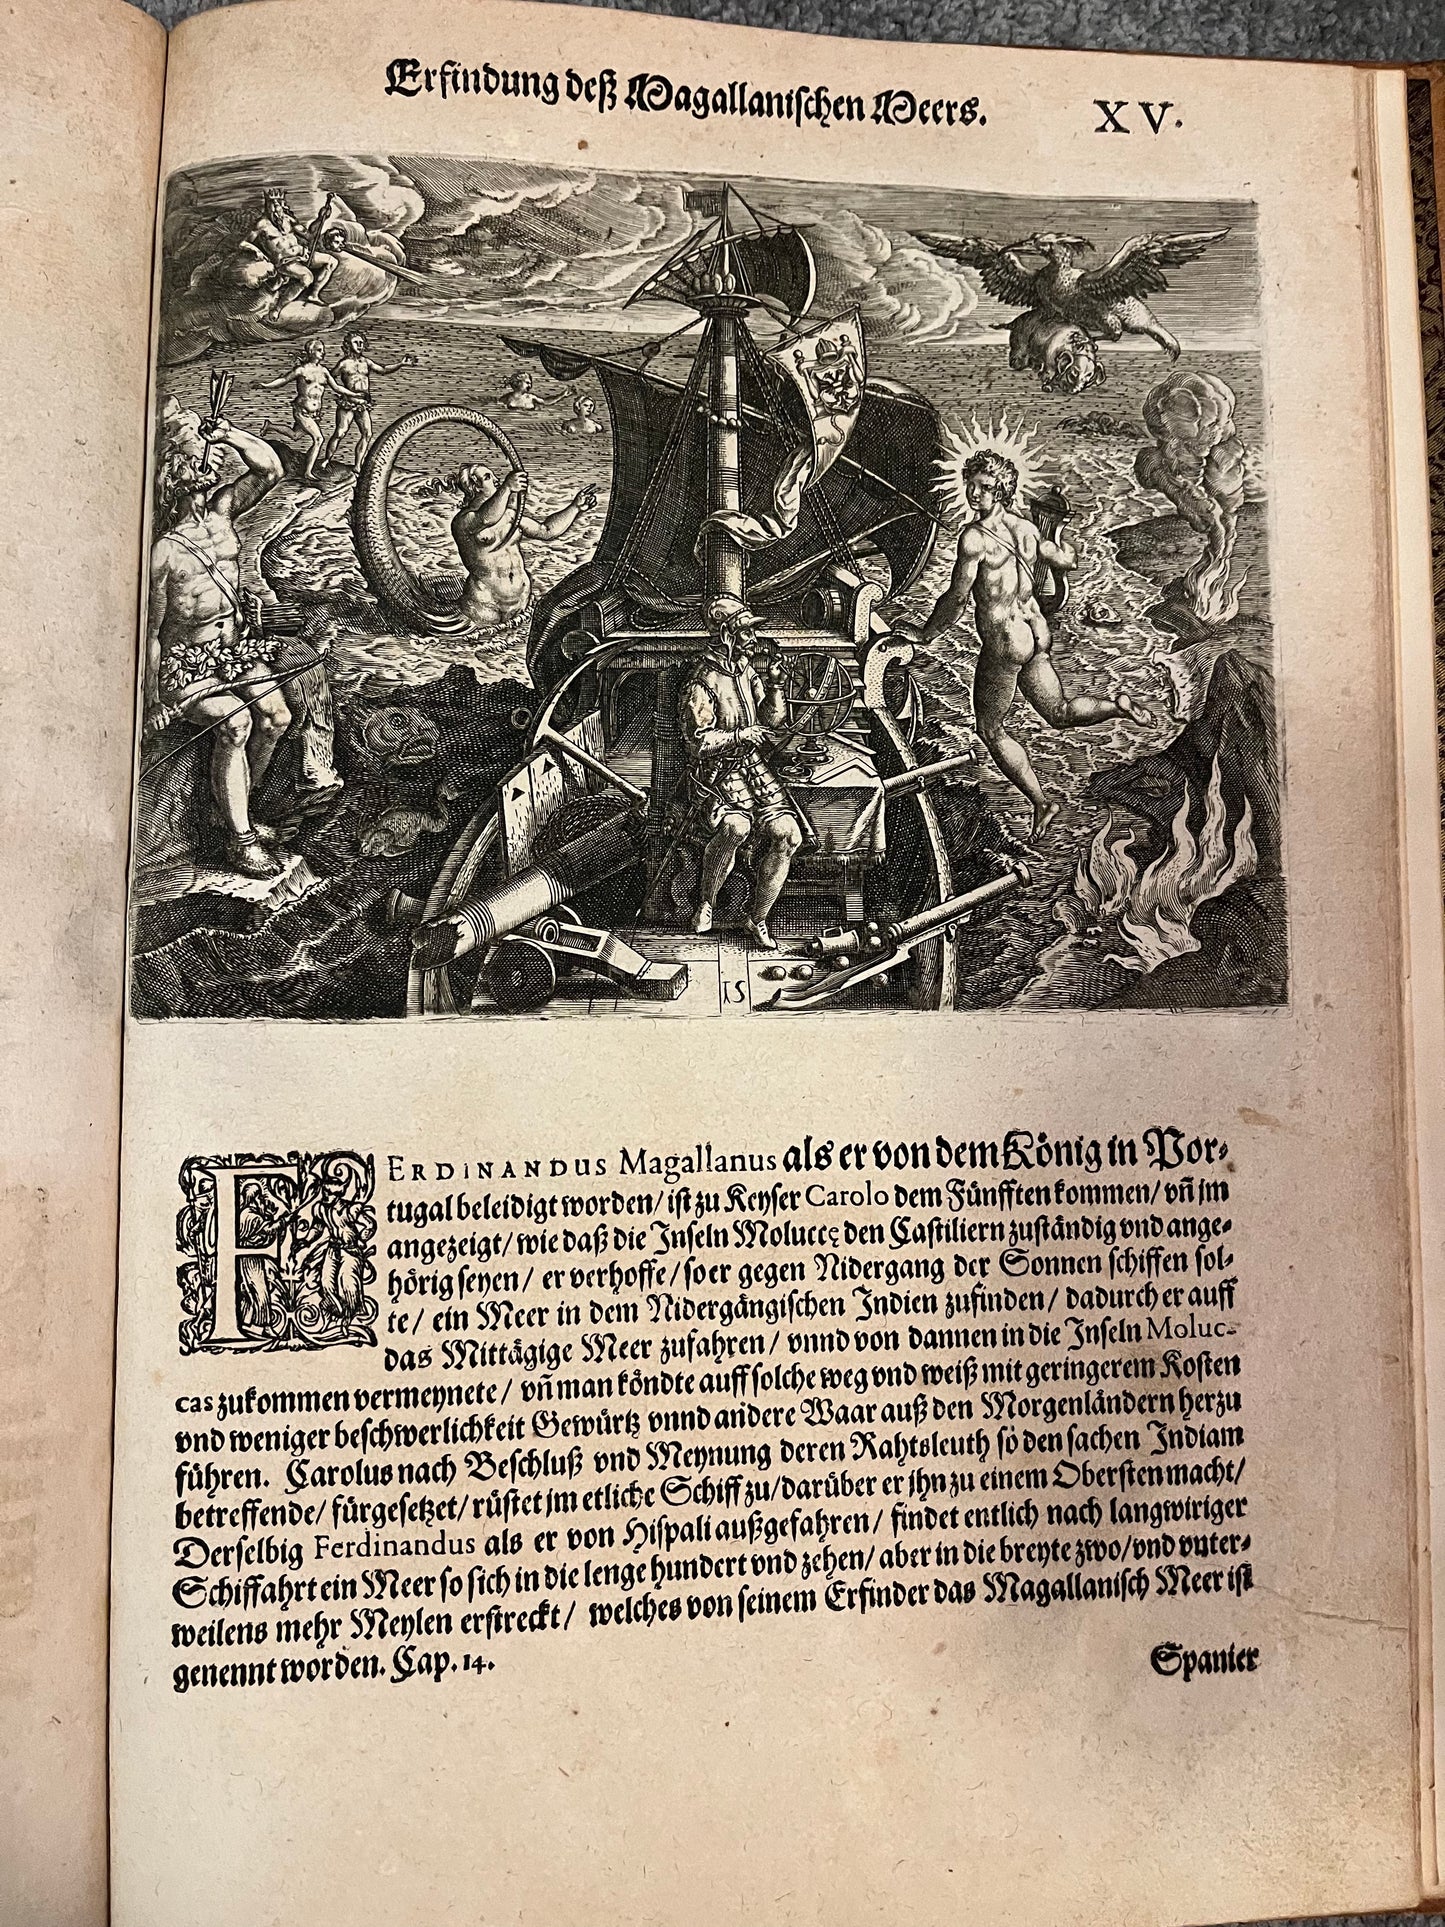 Erfindung deß Magallanischen Meers.
XV.
IS
FERDINANDUS Magallanus als er von dem König in Por-
tugal beleidigt worden/ ist zu Keyser Carolo dem Fünfften kommen/ vñ jm
angezeigt/ wie daß die Inseln Moluccę den Castiliern zuständig vnd ange-
hörig seyen/ er verhoffe/ so er gegen Nidergang der Sonnen schiffen sol-
te/ ein Meer in dem Nidergängischen Indien zufinden/ dadurch er auff
das Mittägige Meer zufahren/ vnnd von dannen in die Inseln Moluc-
cas zukommen vermeynete/ vñ man köndte auff solche weg vnd weiß mit geringerem Kosten
vnd weniger beschwerlichkeit Gewürtz vnnd andere Waar auß den Morgenländern herzu
führen. Carolus nach Beschluß vnd Meynung deren Rahtsleuth so den sachen Indiam
betreffende/ fürgesetzet/ rüstet jm etliche Schiff zu/ darüber er jhn zu einem Obersten macht/
Derselbig Ferdinandus als er von Hispali außgefahren/ findet entlich nach langwiriger
Schiffahrt ein Meer so sich in die lenge hundert vnd zehen/ aber in die breyte zwo/ vnd vnter-
weilens mehr Meylen erstreckt/ welches von seinem Erfinder das Magallanisch Meer ist
genennt worden. Cap. 14.
Spanier